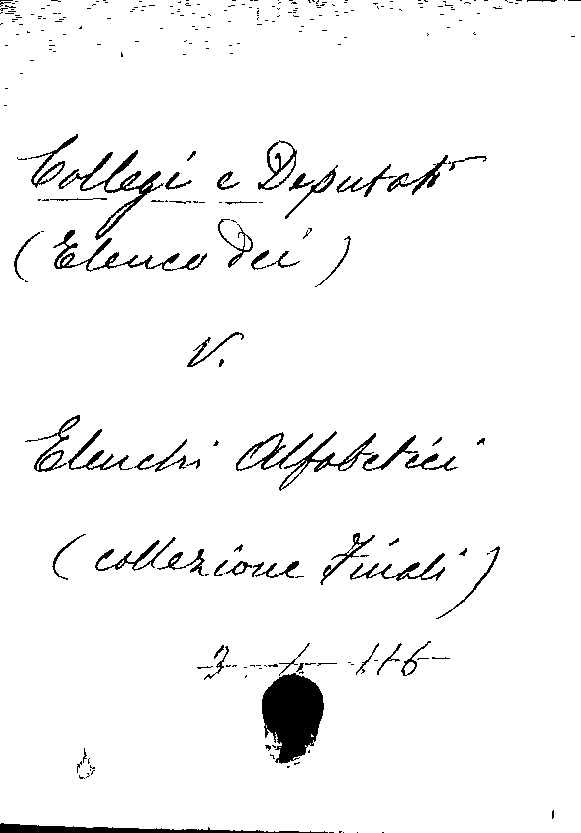 Collegi e Deputati
(Elenco dei)
V.
Elenchi Alfabetici
(collezione Finali)